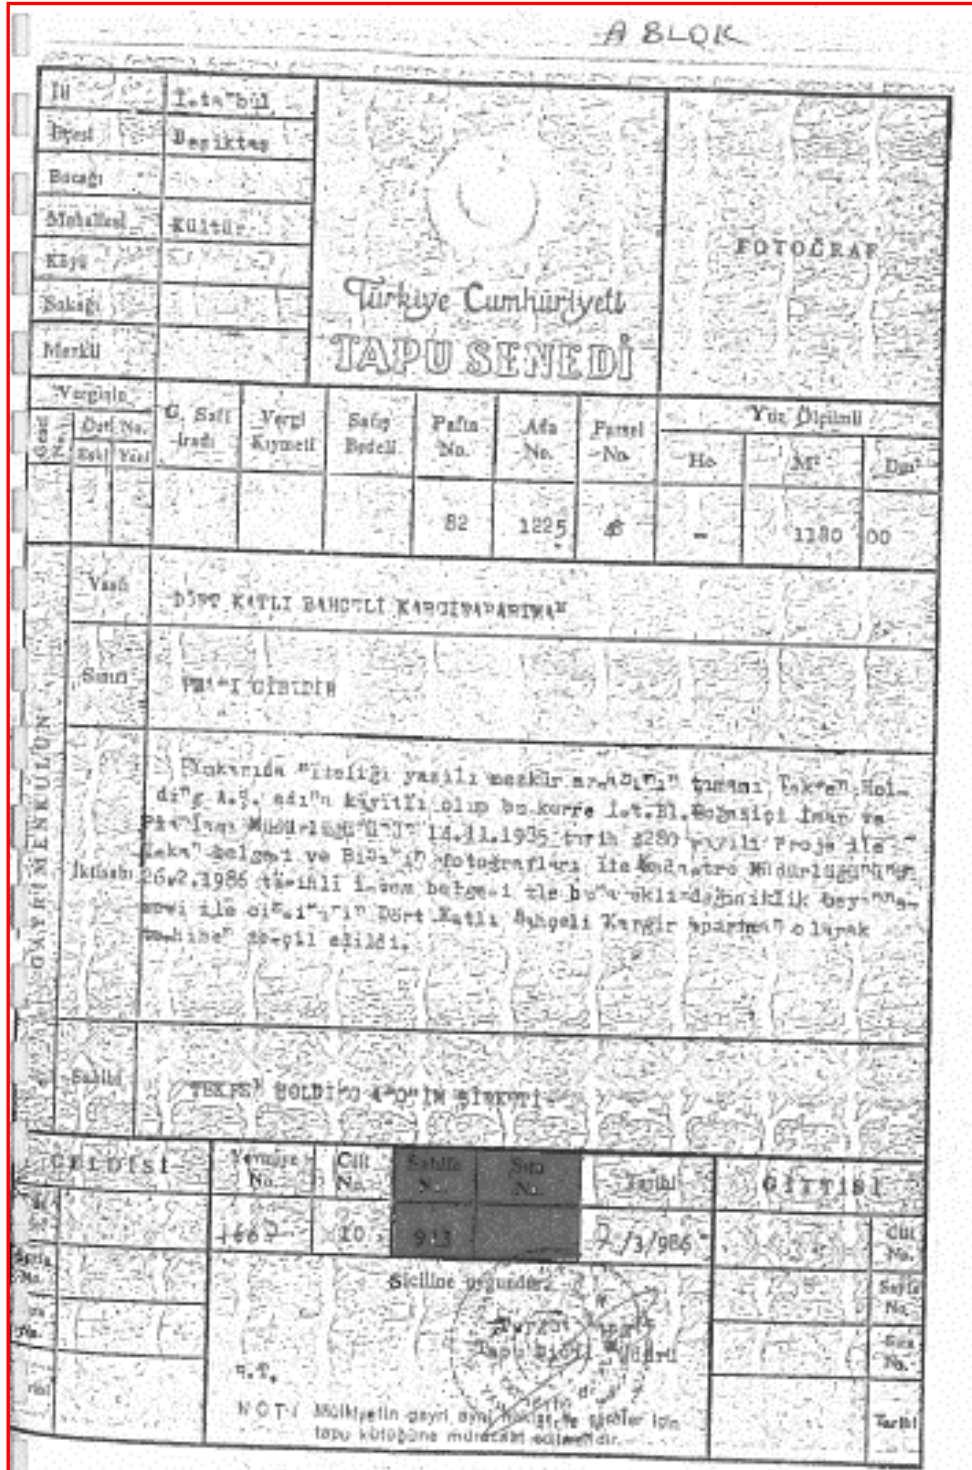 A BLOK
İli İstanbul
İlçesi Beşiktaş
Bucağı
Mahallesi Kültür
Köyü
Sokağı
Mevkii
Türkiye Cumhuriyeti
TAPU SENEDİ
FOTOĞRAF
Verginin
G. Safi İradı
Vergi Kıymeti
Satış Bedeli
Pafta No.
Ada No.
Parsel No.
Yüz Ölçümü
Eski Yeni
Ha M² Dm²
82 1225 - 1180 00
GAYRİMENKULÜN
Vasfı DÖRT KATLI BAHÇELİ KARGİR APARTMAN
Sınırı PLANI GİBİDİR
İktisabı
Yukarıda niteliği yazılı mezkûr tamamı Tekfen Hol-
ding A.Ş. adına kayıtlı olup bu kerre İst.Bl.Boğaziçi İmar ve
Müdürlüğünün 14.11.1985 tarih sayılı Proje ile
belgesi ve Binanın fotoğrafları ile Kadastro Müdürlüğünün
26.2.1986 tarihli belgesi ile buna ekli değişiklik
ile Dört Katlı Bahçeli Kargir apartman olarak
tescil edildi.
Sahibi TEKFEN HOLDİNG ANONİM ŞİRKETİ
GELDİSİ
Yevmiye No.
Cilt No.
Sahife No.
Sıra No.
Tarihi
GİTTİSİ
10 913 /3/986
Cilt No.
Sayfa No.
Sıra No.
Tarihi
Siciline uygundur.
Tapu Sicil Müdürü
NOT: Mülkiyetin gayri ayni haklar ve şerhler için
tapu kütüğüne müracaat edilmelidir.